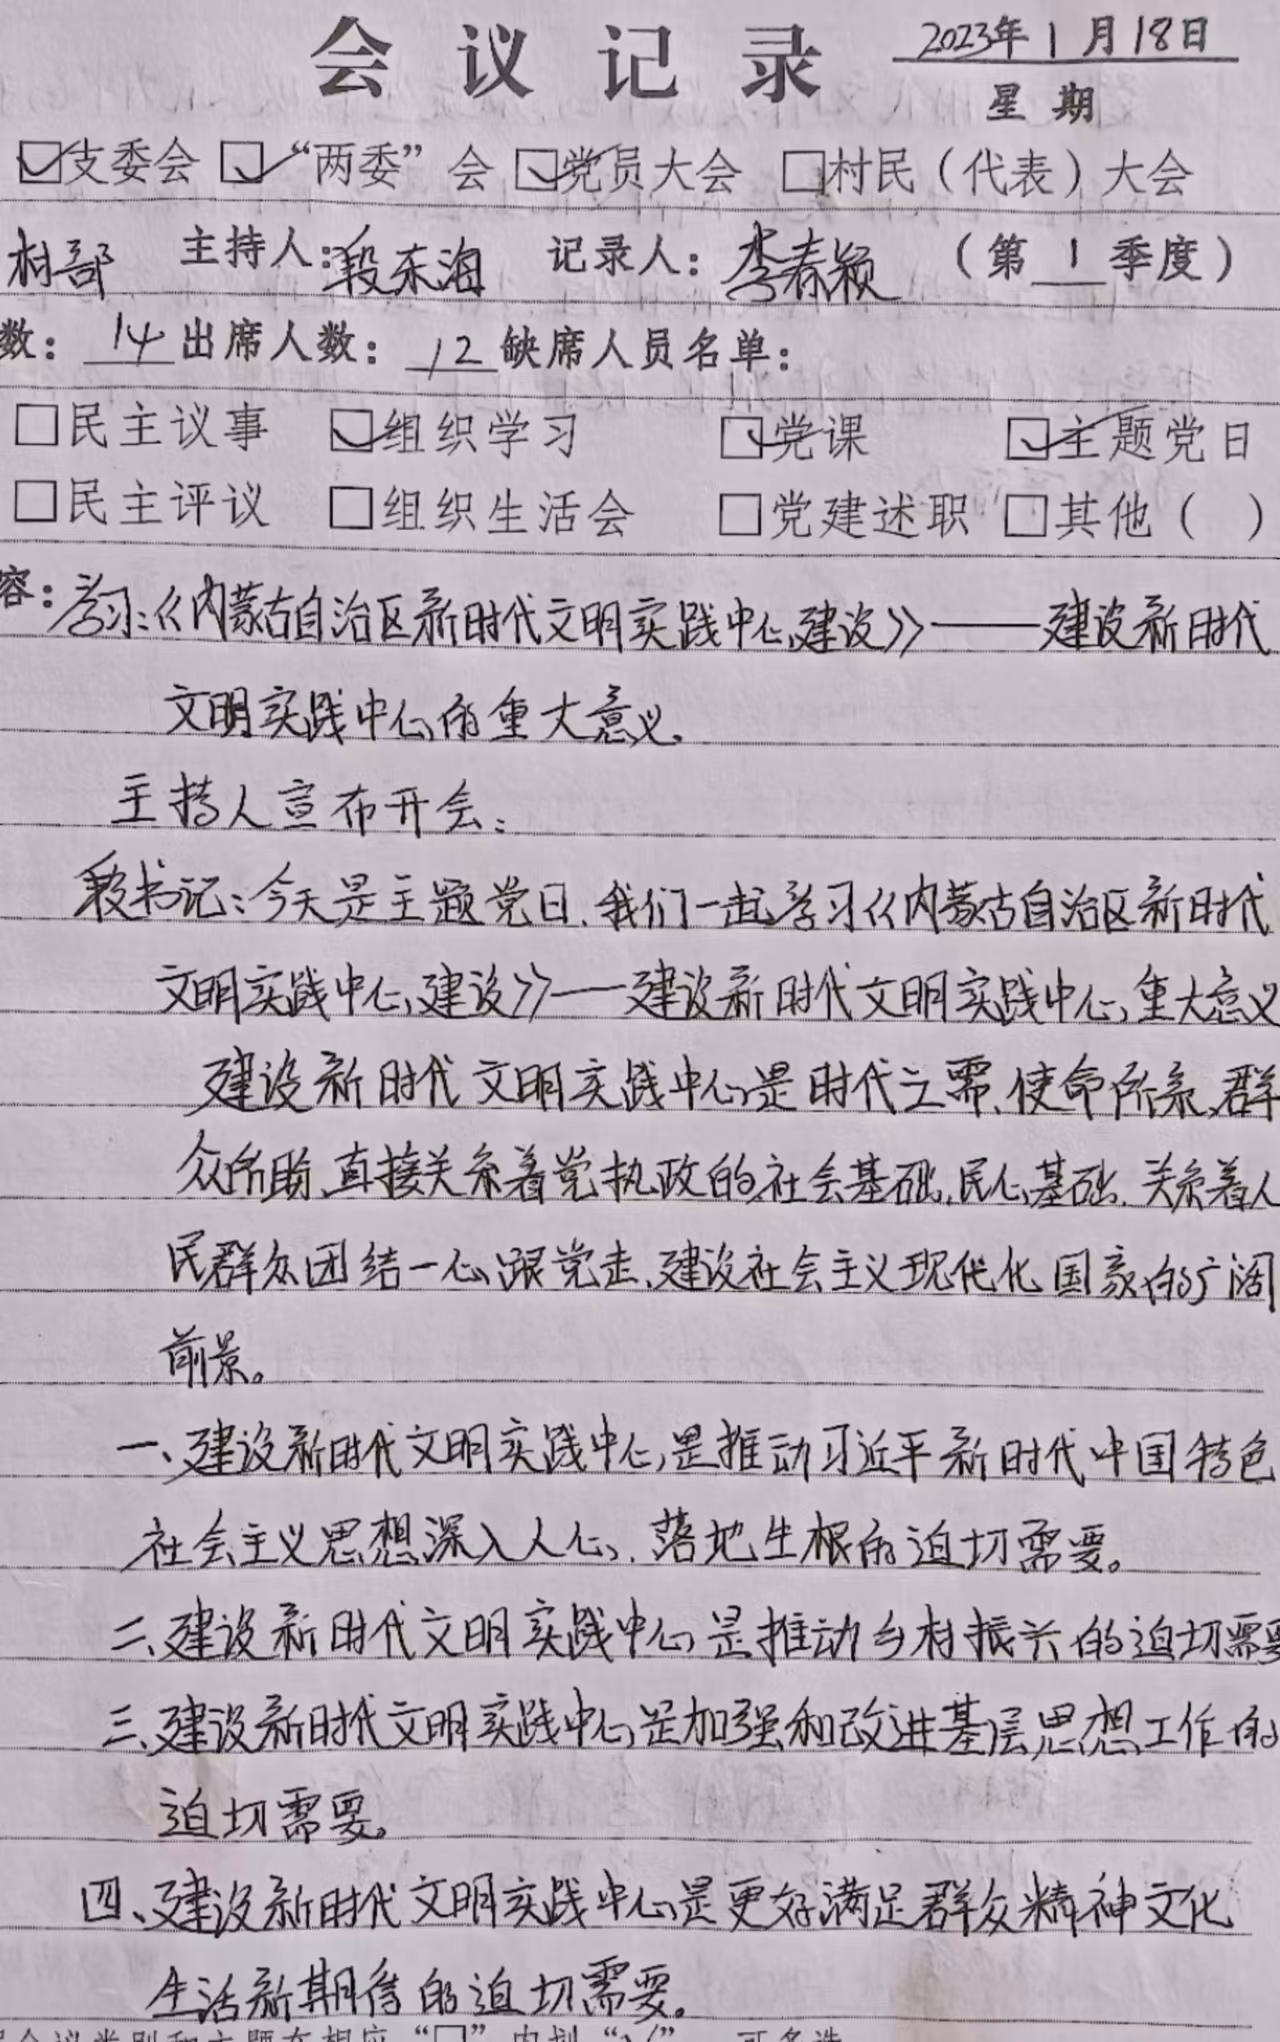 会议记录 2023年1月18日
星期
☑支委会 ☑“两委”会 ☑党员大会 □村民（代表）大会
村部 主持人：段东海 记录人：李春颖 （第1季度）
数：14出席人数：12缺席人员名单：
□民主议事 ☑组织学习 ☑党课 ☑主题党日
□民主评议 □组织生活会 □党建述职 □其他（ ）
容：学习：《内蒙古自治区新时代文明实践中心建设》——建设新时代
文明实践中心的重大意义。
主持人宣布开会：
段书记：今天是主题党日，我们一起学习《内蒙古自治区新时代
文明实践中心建设》——建设新时代文明实践中心重大意义
建设新时代文明实践中心是时代之需、使命所系、群
众所盼、直接关系着党执政的社会基础、民心基础、关系着人
民群众团结一心跟党走、建设社会主义现代化国家的广阔
前景。
一、建设新时代文明实践中心是推动习近平新时代中国特色
社会主义思想深入人心、落地生根的迫切需要。
二、建设新时代文明实践中心是推动乡村振兴的迫切需要
三、建设新时代文明实践中心是加强和改进基层思想工作的
迫切需要。
四、建设新时代文明实践中心是更好满足群众精神文化
生活新期待的迫切需要。
会议类别和主题在相应“□”内划“√”，可多选